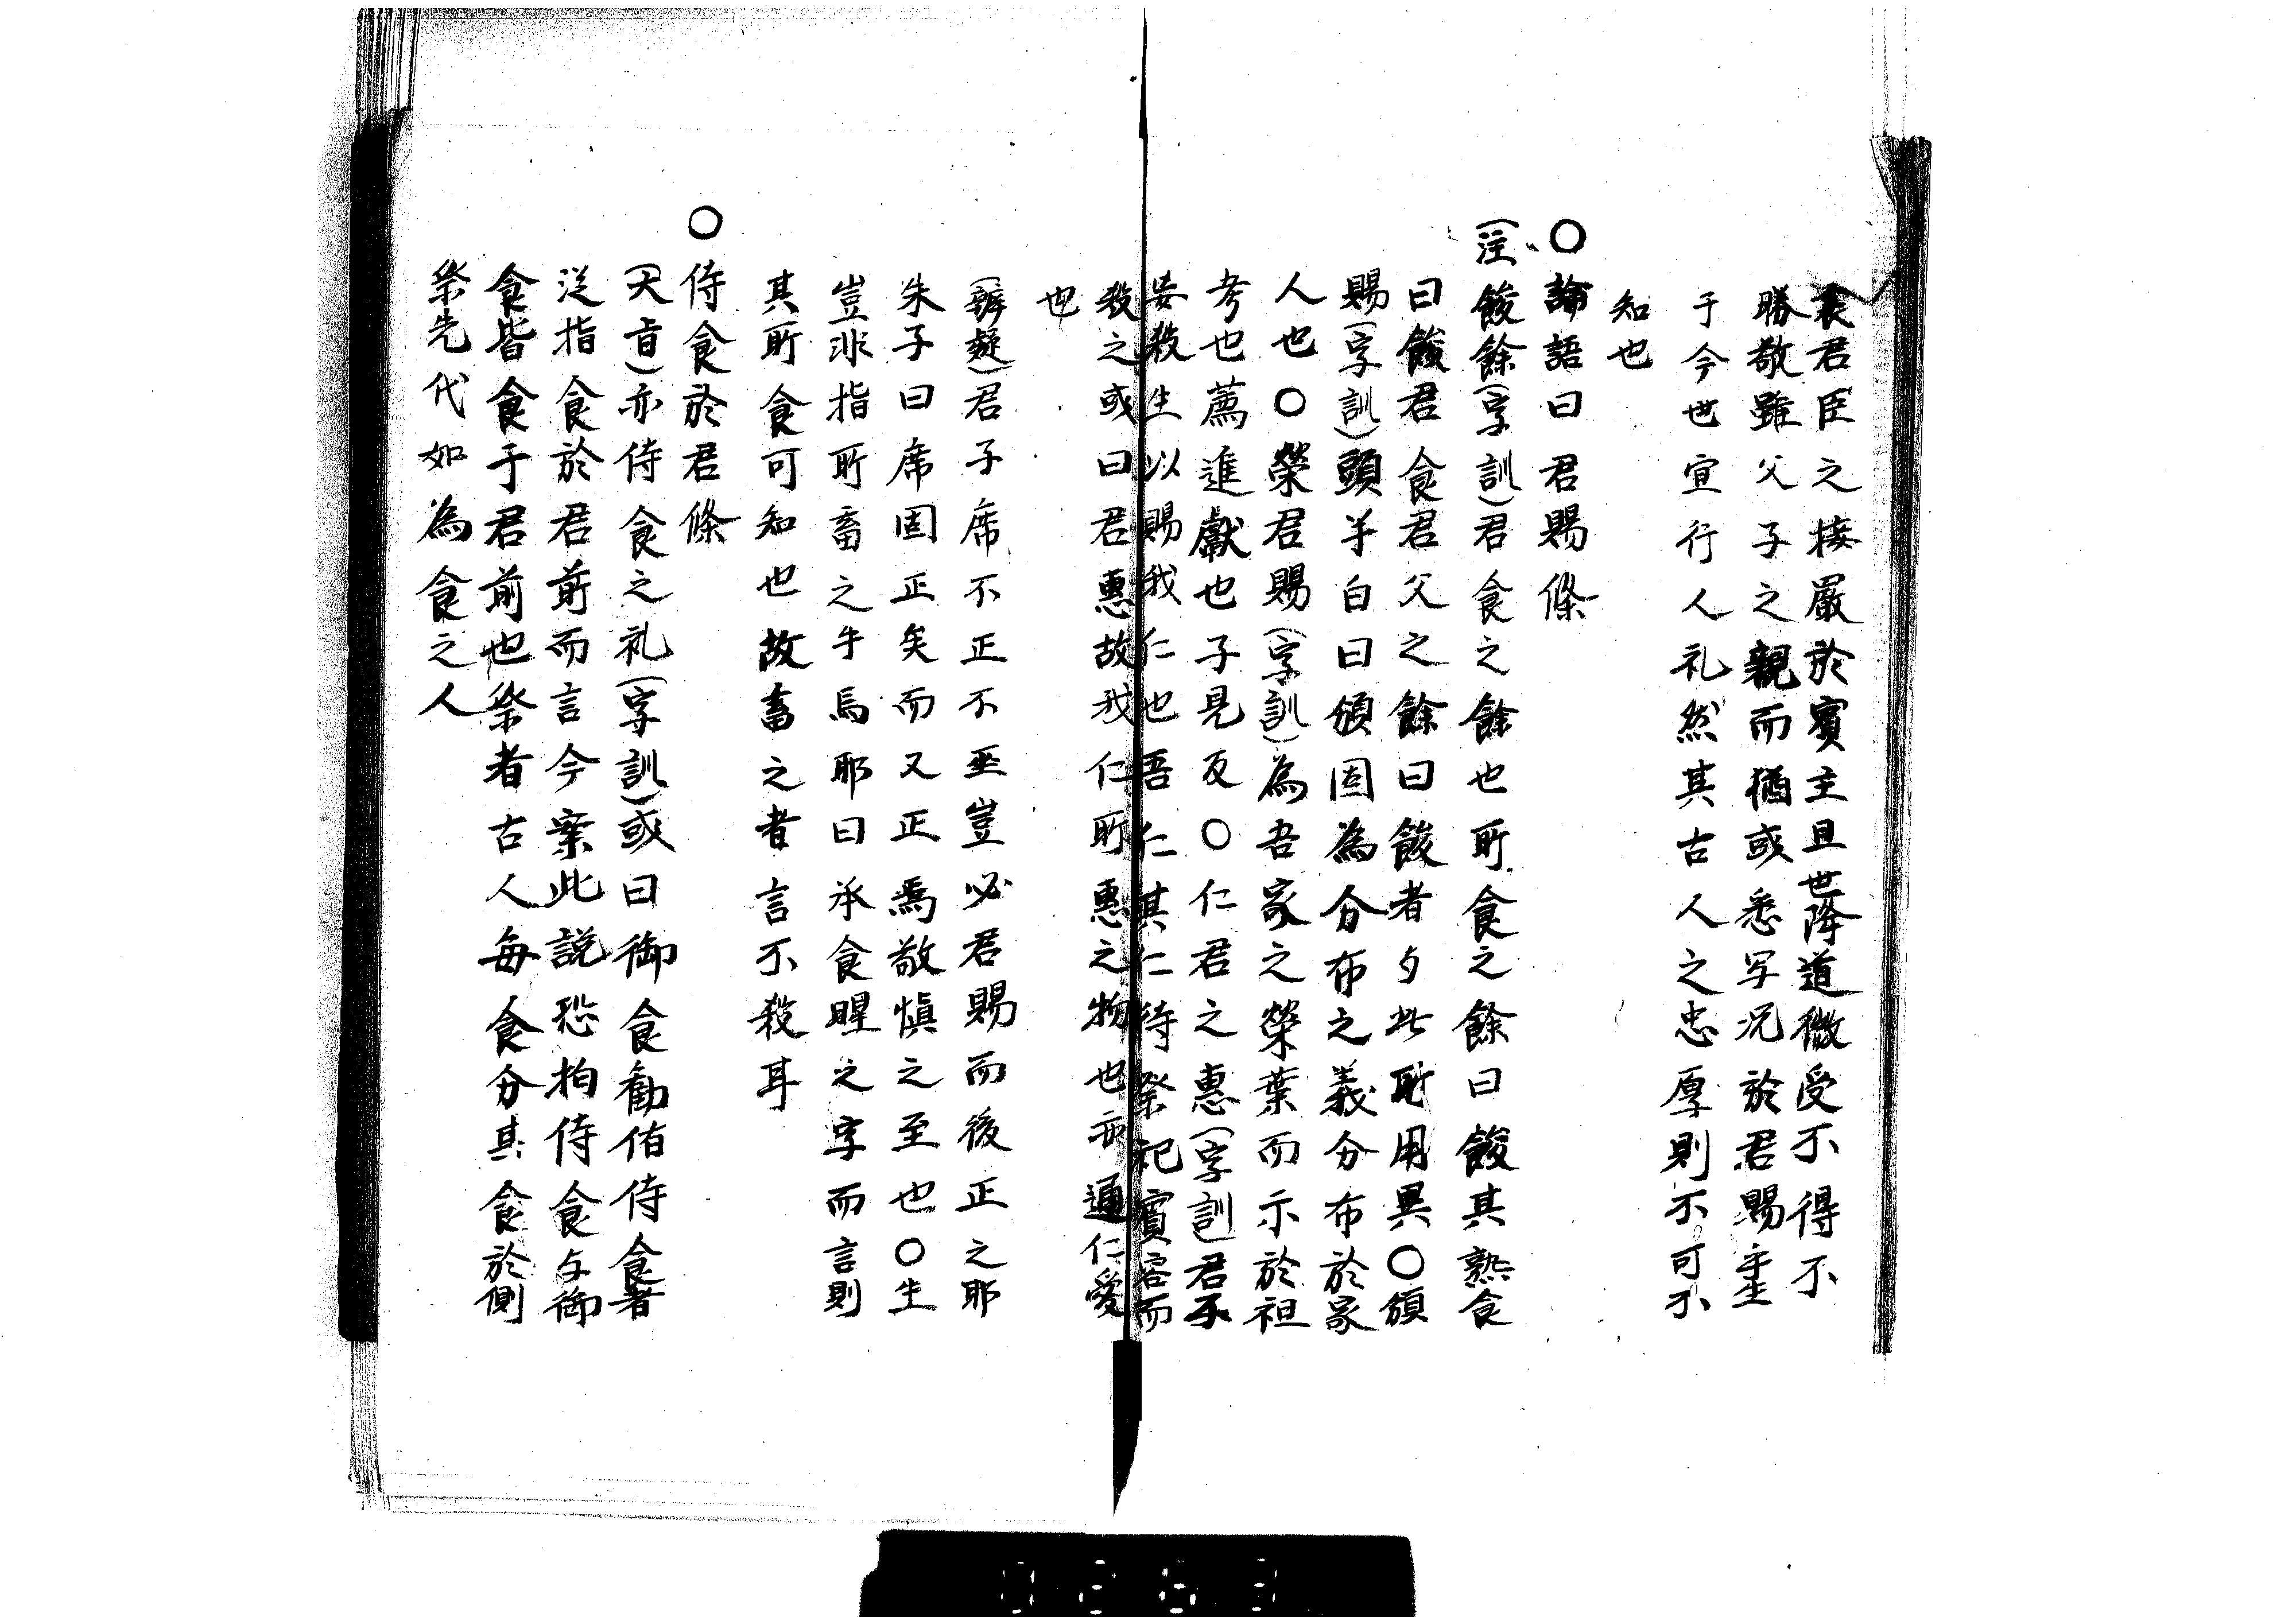 裏君臣之接嚴於賓主且世降道微受不得不
勝敬雖父子之親而猶或悉写況於君賜乎生
于今世宜行人礼然其古人之忠厚則不可不
知也
○論語曰君賜條
(注)餕餘(字訓)君食之餘也所食之餘曰餕其熟食
曰餕君食君父之餘曰餕者与此所用異○頒
賜(字訓)頭半白曰頒固為分布之義分布於家
人也○榮君賜(字訓)為吾家之榮葉而示於祖
考也薦進獻也子見反○仁君之惠(字訓)君不
妄殺生以賜我仁也吾仁其仁待祭祀賓客而
殺之或曰君惠故我仁所惠之物也亦通仁愛
也
(辨疑)君子席不正不坐豈必君賜而後正之耶
朱子曰席固正矣而又正焉敬慎之至也○生
豈非指所畜之牛馬耶曰承食腥之字而言則
其所食可知也故畜之者言不殺耳
○侍食於君條
(大旨)亦侍食之礼(字訓)或曰御食勸侑侍食者
泛指食於君前而言今案此説恐拍侍食与御
食皆食于君前也祭者古人每食分其食於側
祭先代如為食之人